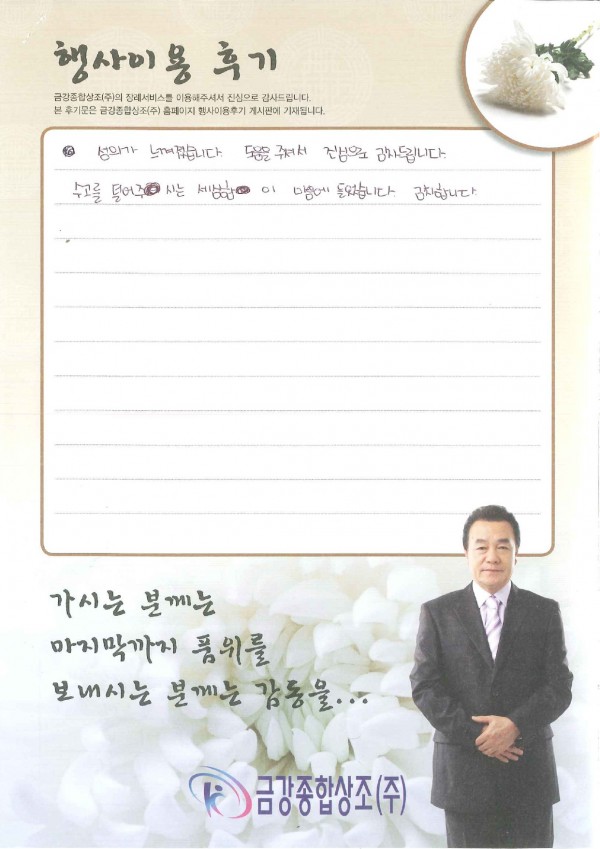 행사이용 후기
금강종합상조(주)의 장례서비스를 이용해주셔서 진심으로 감사드립니다.
본 후기문은 금강종합상조(주) 홈페이지 행사이용후기 게시판에 기재됩니다.
성의가 느껴졌습니다. 도움을 주셔서 진심으로 감사드립니다.
수고를 덜어주시는 세심함이 마음에 들었습니다. 감사합니다.
가시는 분께는
마지막까지 품위를
보내시는 분께는 감동을...
금강종합상조(주)